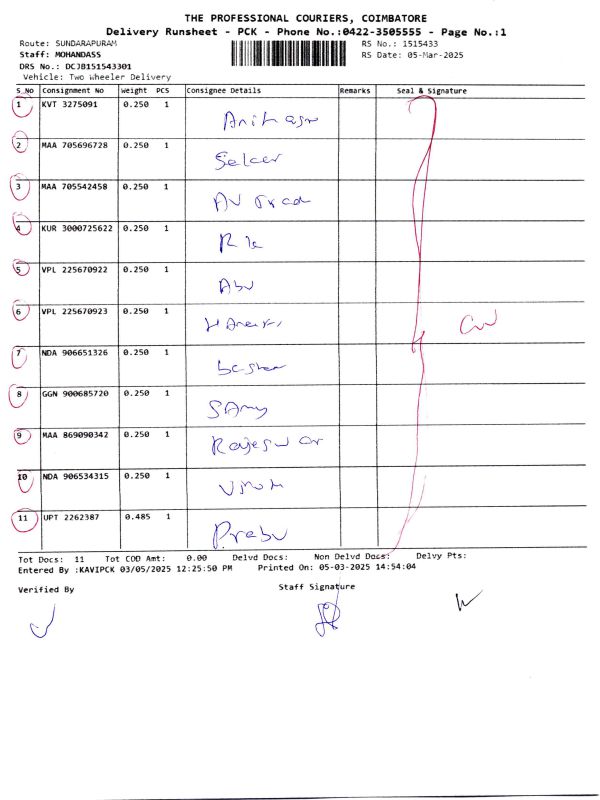 THE PROFESSIONAL COURIERS, COIMBATORE
Delivery Runsheet - PCK - Phone No.:0422-3505555 - Page No.:1
Route: SUNDARAPURAM RS No.: 1515433
Staff: MOHANDASS RS Date: 05-Mar-2025
DRS No.: DCJB151543301
Vehicle: Two Wheeler Delivery
S_No Consignment No Weight PCS Consignee Details Remarks Seal & Signature
1 KVT 3275091 0.250 1
2 MAA 705696728 0.250 1
3 MAA 705542458 0.250 1 AV
4 KUR 3000725622 0.250 1
5 VPL 225670922 0.250 1 Abu
6 VPL 225670923 0.250 1
7 NDA 906651326 0.250 1
8 GGN 900685720 0.250 1 SAmy
9 MAA 869090342 0.250 1 Rajeswar
10 NDA 906534315 0.250 1
11 UPT 2262387 0.485 1 Prabu
Tot Docs: 11 Tot COD Amt: 0.00 Delvd Docs: Non Delvd Docs: Delvy Pts:
Entered By :KAVIPCK 03/05/2025 12:25:50 PM Printed On: 05-03-2025 14:54:04
Verified By Staff Signature